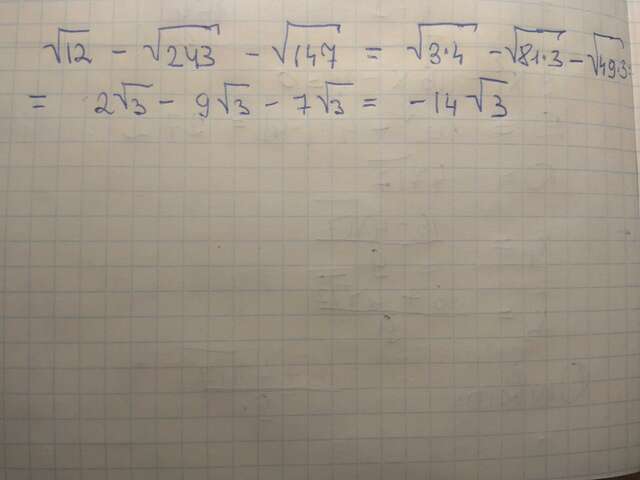 √12 - √243 - √147 = √3·4 - √81·3 - √49·3
= 2√3 - 9√3 - 7√3 = -14√3